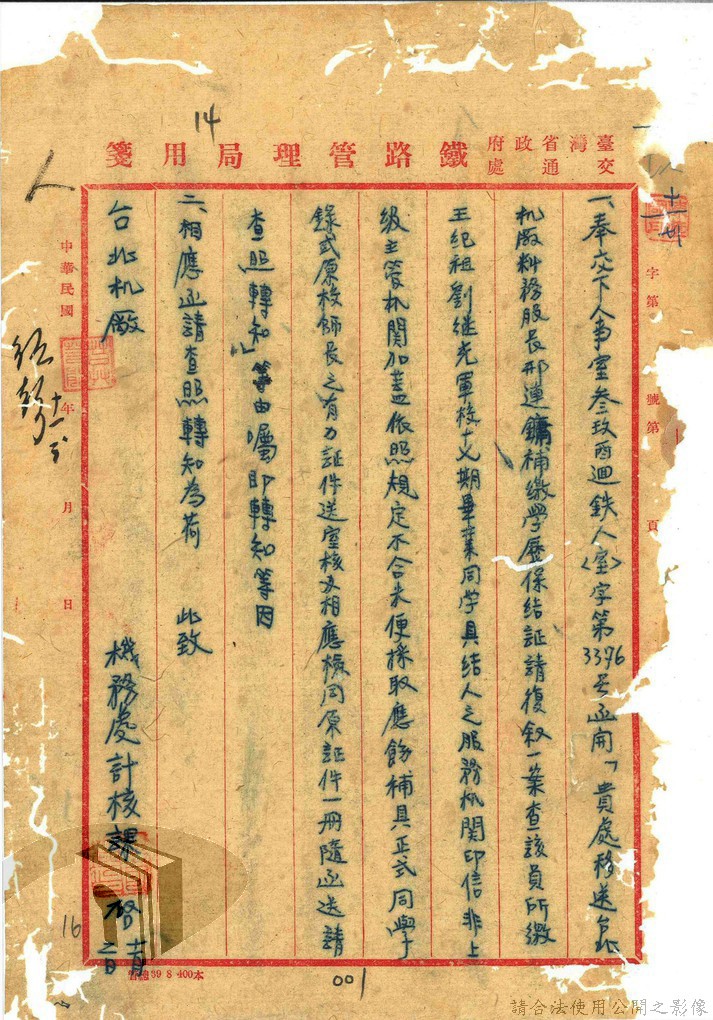 14
臺灣省政府交通處鐵路管理局用箋
字第 號第 頁
一、奉交下人事室叁玖酉迴鉄人〈室〉字第3396号函開「貴處移送台北
机廠料務股長邢蓮鏞補繳學歷保結証請復叙一案查該員所繳
王紀祖劉継光軍校十七期畢業同学具結人之服務机関印信非上
級主管机関加蓋依照規定不合未便採取應飭補具正式同學
錄或原校師長之有力証件送室核叙相應檢同原証件一冊隨函送請
查照轉知」等由囑即轉知等因
二、相應函請查照轉知為荷 此致
台北机廠
機務處計核課 啓
中華民國 年 月 日
16
39 8 400本
001
請合法使用公開之影像